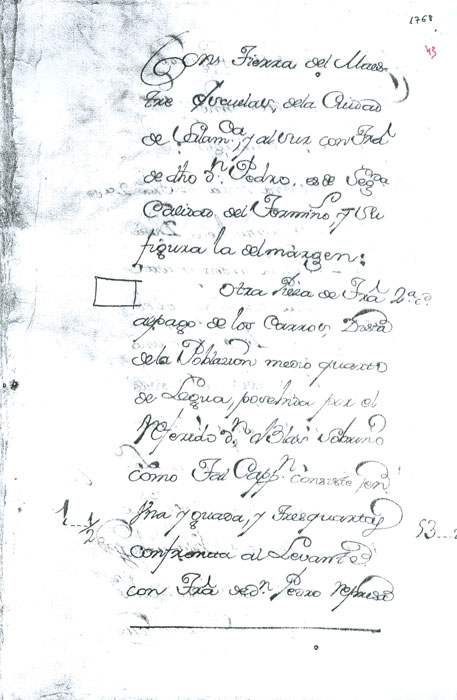 1768
43
Con Tierra del Maes-
tre Escuelas, de la Ciudad
de Salam.ca, y al sur con Trrâ
de dho D.n Pedro, es de Seg.da
Calidad del Termino, y su
figura la del margen:
Otra Pieza de Trrâ 2.a c.d
al pago de los Carros, Dista
de la Poblazion medio quarto
de Legua, posehida por el
Referido D.n Blas Sobrino
como Tal Capp.n consiste en
Una yguada, y Tres quartas
confronta al Levante
con Trrâ de D.n Pedro
1...1/2
53...